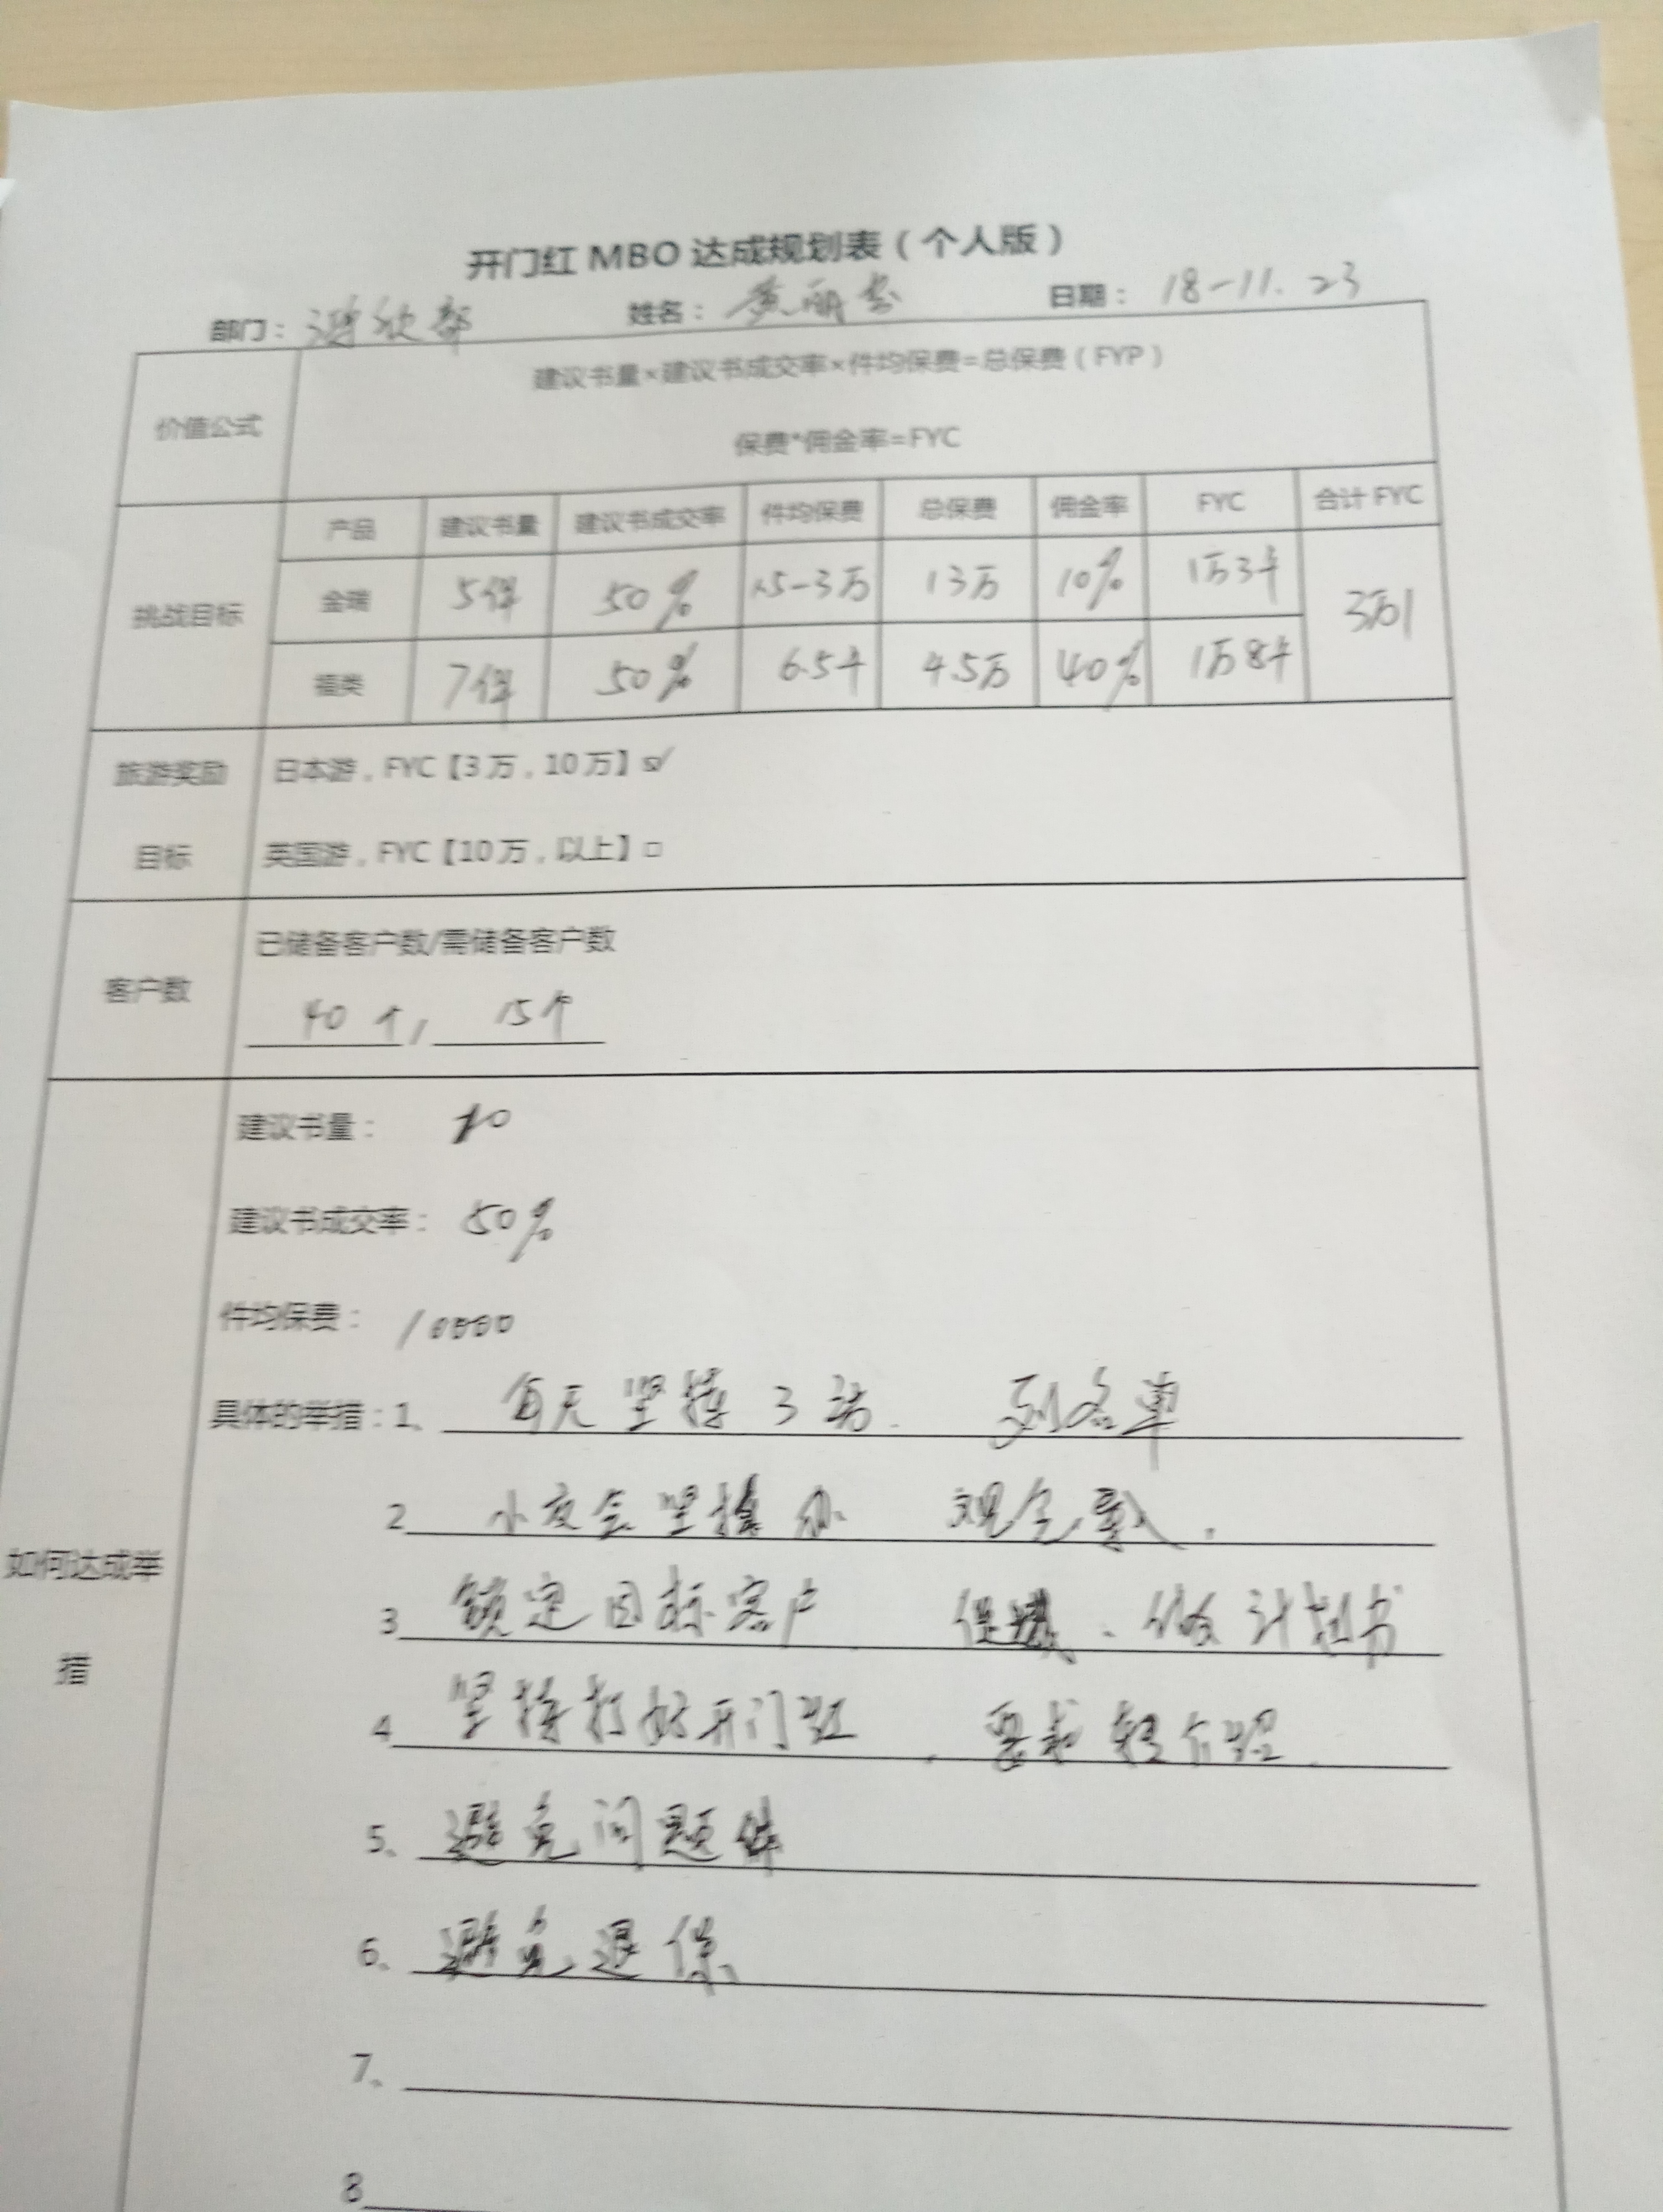 开门红 MBO 达成规划表（个人版）
部门： 部 姓名：黄丽 日期：18-11.23
价值公式
建议书量×建议书成交率×件均保费=总保费（FYP）
保费*佣金率=FYC
挑战目标
产品 建议书量 建议书成交率 件均保费 总保费 佣金率 FYC 合计 FYC
金瑞 5件 50% 5-3万 13万 10% 1万3千 3万1
福类 7件 50% 6.5千 4.5万 40% 1万8千
旅游奖励
目标
日本游，FYC【3万，10万】☑
英国游，FYC【10万，以上】□
客户数
已储备客户数/需储备客户数
40个/ 15个
如何达成举
措
建议书量： 10
建议书成交率： 50%
件均保费： 10000
具体的举措：1、 每天坚持3访. 列名单
2 小交会坚持办
3 锁定目标客户 促成、做计划书
4 坚持打好开门红. 要求转介绍.
5、 避免问题件
6、 避免退保
7、
8